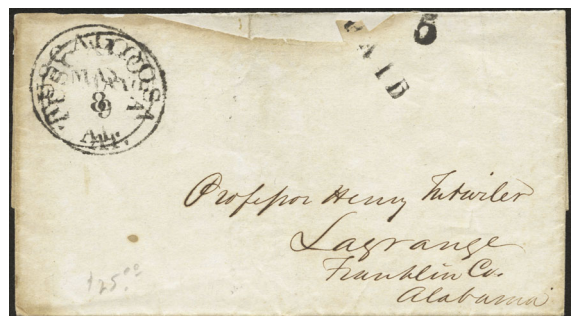 TUSCALOOSA
MAR
Al.
PAID
5
Professor Henry Tutwiler
Lagrange
Franklin Co.
Alabama
$25.00